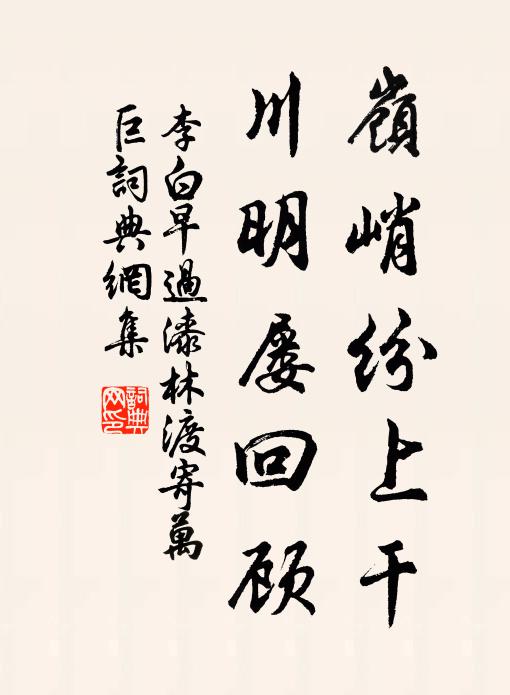 嶺峭紛上干
川明屡回顾
李白早過漆林渡寄萬
巨詞典網集
詞典
网印